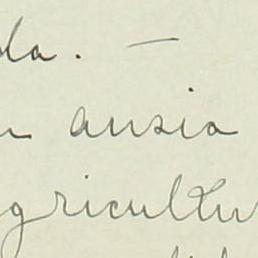 la. —
ansia
gricultu